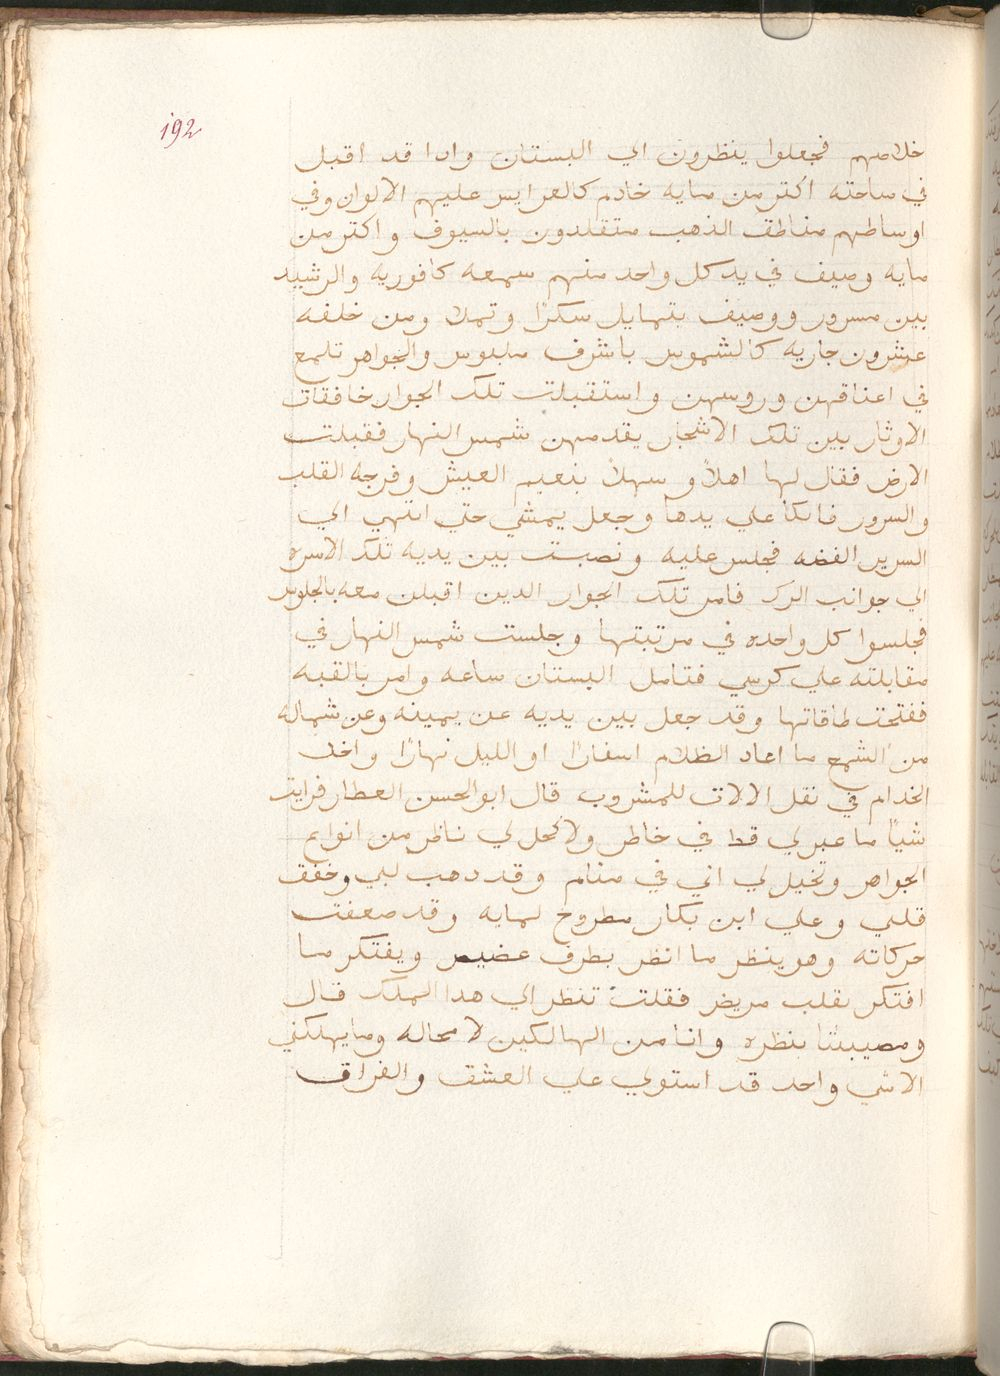 192
خلاصهم فجعلوا ينظرون الي البستان وادا قد اقبل
في ساحته اكتر من مايه خادم كالعرايس عليهم الالوان وفي
اوساطهم مناطق الذهب متقلدون بالسيوف واكتر من
مايه وصيف في يد كل واحد منهم سمعه كافوريه والرشيد
بين مسرور ووصيف يتمايل سكرًا وتملا ومن خلفه
عشرون جاريه كالشموس باشرف ملبوس والجواهر تلمع
في اعناقهن وروسهن واستقبلت تلك الجوار خافقات
الاوتار بين تلك الاشجار يقدمهن شمس النهار فقبلت
الارض فقال لها اهلاً و سهلاً بنعيم العيش وفرجه القلب
والسرور فاتكا علي يدها وجعل يمشي حتي انتهي الي
السرير الفضه فجلس عليه ونصبت بين يديه تلك الاسره
الي جوانب البرك فامر تلك الجوار الدين اقبلن معه بالجلوس
فجلسوا كل واحده في مرتبتها وجلست شمس النهار في
مقابلته علي كرسي فتامل البستان ساعه وامر بالقبه
ففتحت طاقاتها وقد جعل بين يديه عن يمينه وعن شماله
من الشمع ما اعاد الظلام اسفارًا او الليل نهارًا واخد
الخدام في نقل الالات للمشروب قال ابو الحسن العطار فرايت
شيًا ما عبر لي قط في خاطر ولا كحل لي ناظر من انواع
الجواهر وتخيل لي اني في منام وقد دهب لبي وخفق
قلبي وعلي ابن بكار مطروح لمابه وقد ضعفت
حركاته وهو ينظر ما انظر بطرف غضيض ويفتكر ما
افتكر بقلب مريض فقلت تنظر الي هدا الملك قال
ومصيبتنا بنظره وانا من الهالكين لا محاله وما يهلكني
الا شي واحد قد استولي علي العشق والفراق